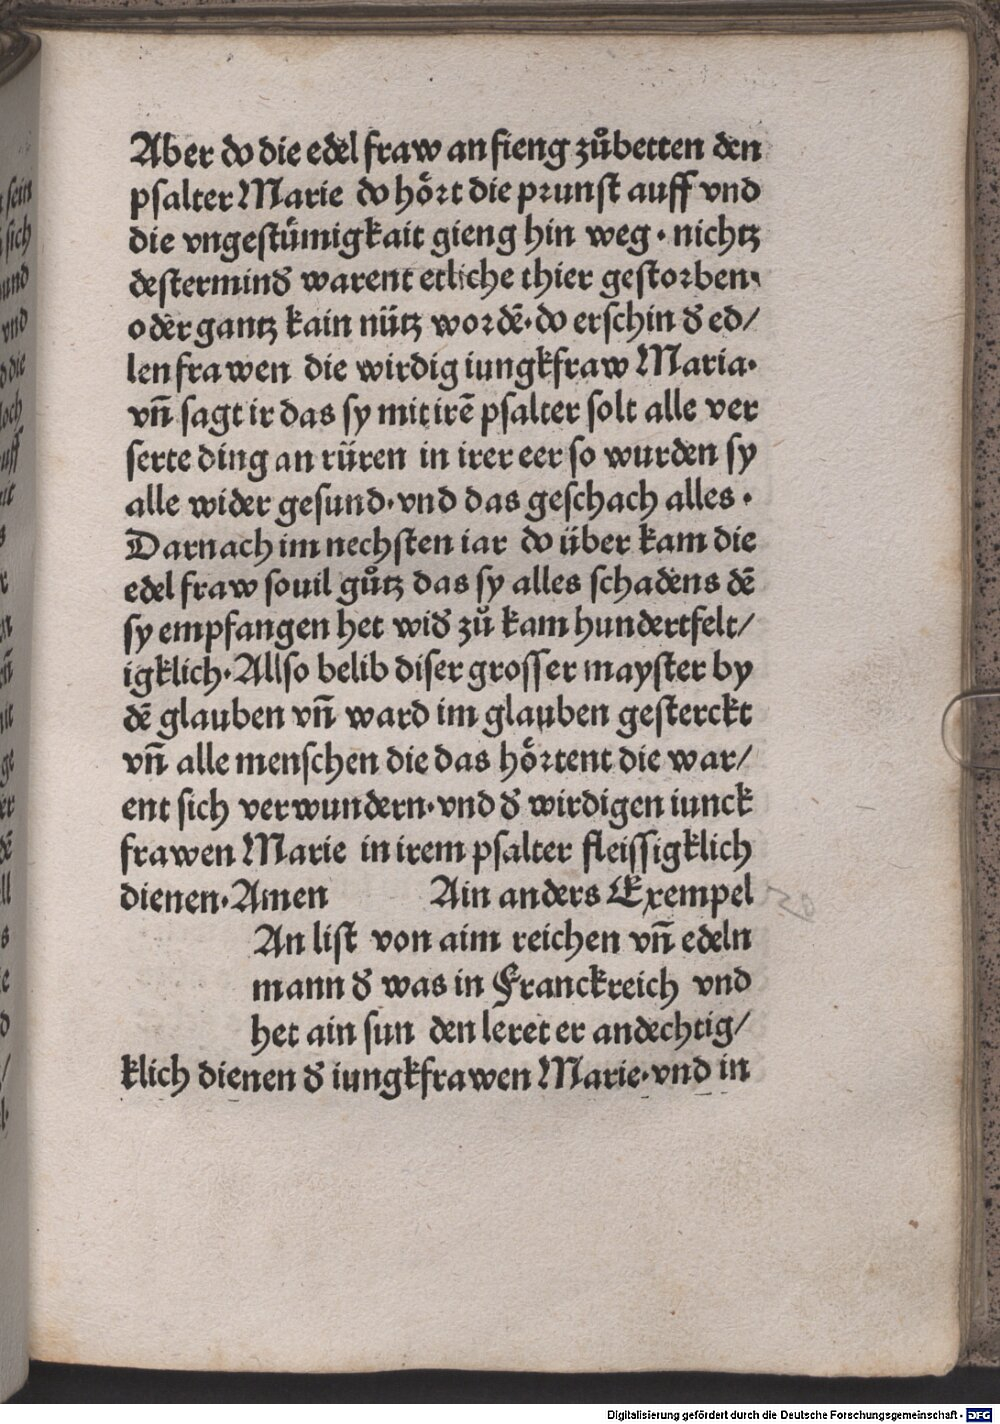 Aber do die edel fraw an fieng zůbetten den
psalter Marie do hört die prunst auff vnd
die vngestümigkait gieng hin weg · nichtz
destermind̕ warent etliche thier gestorben·
oder gantz kain nütz wordē·do erschin d̕ ed/
len frawen die wirdig iungkfraw Maria·
vn̄ sagt ir das sy mit irē psalter solt alle ver
serte ding an rüren in irer eer so wurden sy
alle wider gesund·vnd das geschach alles ·
Darnach im nechsten iar do über kam die
edel fraw souil gůtz das sy alles schadens dē
sy empfangen het wid̕ zů kam hundertfelt/
igklich·Allso belib diser grosser mayster by
dē glauben vn̄ ward im glauben gesterckt
vn̄ alle menschen die das hörtent die war/
ent sich verwundern·vnd d̕ wirdigen iunck
frawen Marie in irem psalter fleissigklich
dienen·Amen Ain anders Exempel
An list von aim reichen vn̄ edeln
mann d̕ was in Franckreich vnd
het ain sun den leret er andechtig/
klich dienen d̕ iungkfrawen Marie·vnd in
Digitalisierung gefördert durch die Deutsche Forschungsgemeinschaft - DFG